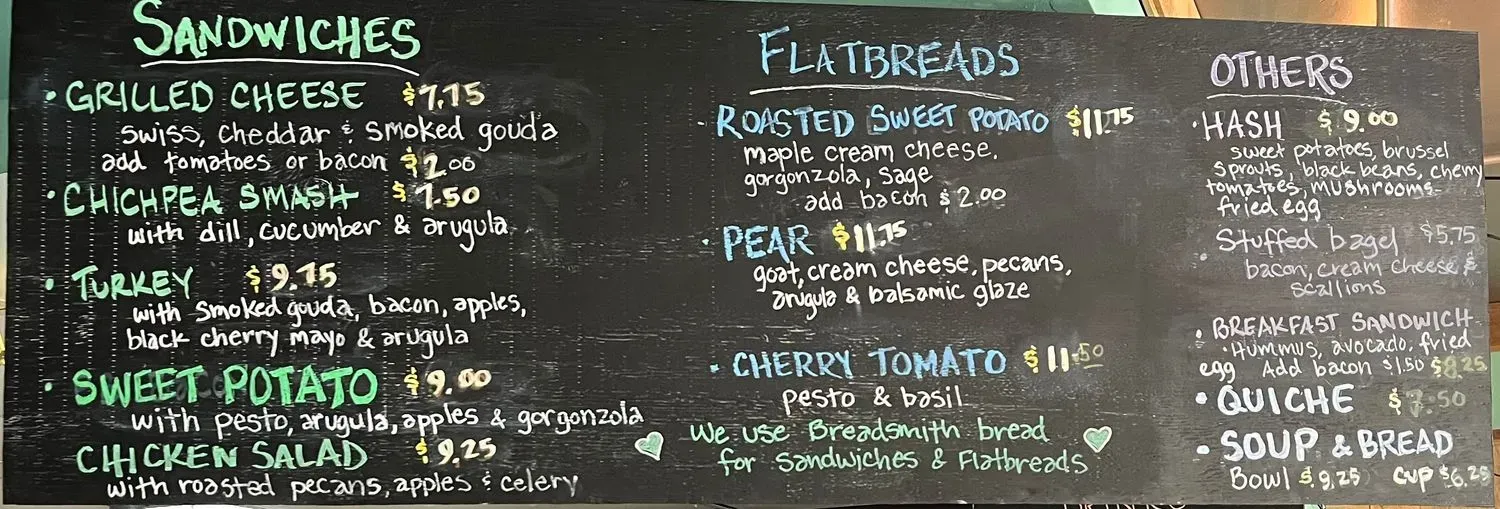 SANDWICHES
· GRILLED CHEESE $7.75
swiss, cheddar & smoked gouda
add tomatoes or bacon $2.00
· CHICHPEA SMASH $7.50
with dill, cucumber & arugula
· TURKEY $9.75
with smoked gouda, bacon, apples,
black cherry mayo & arugula
· SWEET POTATO $9.00
with pesto, arugula, apples & gorgonzola
CHICKEN SALAD $9.25
with roasted pecans, apples & celery
FLATBREADS
· ROASTED SWEET POTATO $11.75
maple cream cheese.
gorgonzola, sage
add bacon $2.00
· PEAR $11.75
goat, cream cheese, pecans,
arugula & balsamic glaze
· CHERRY TOMATO $11.50
pesto & basil
We use Breadsmith bread
for sandwiches & Flatbreads
OTHERS
· HASH $9.00
sweet potatoes, brussel
sprouts, black beans, cherry
tomatoes, mushrooms
fried egg
· Stuffed bagel $5.75
bacon, cream cheese &
scallions
· BREAKFAST SANDWICH
· Hummus, avocado, fried
egg Add bacon $1.50 $8.25
· QUICHE $7.50
· SOUP & BREAD
Bowl $9.25 CUP $6.25